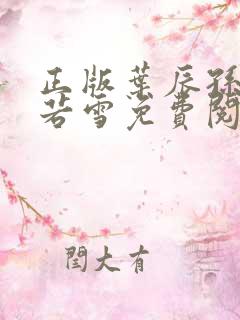 正版葉辰孫
若雪免費閱
閆大有